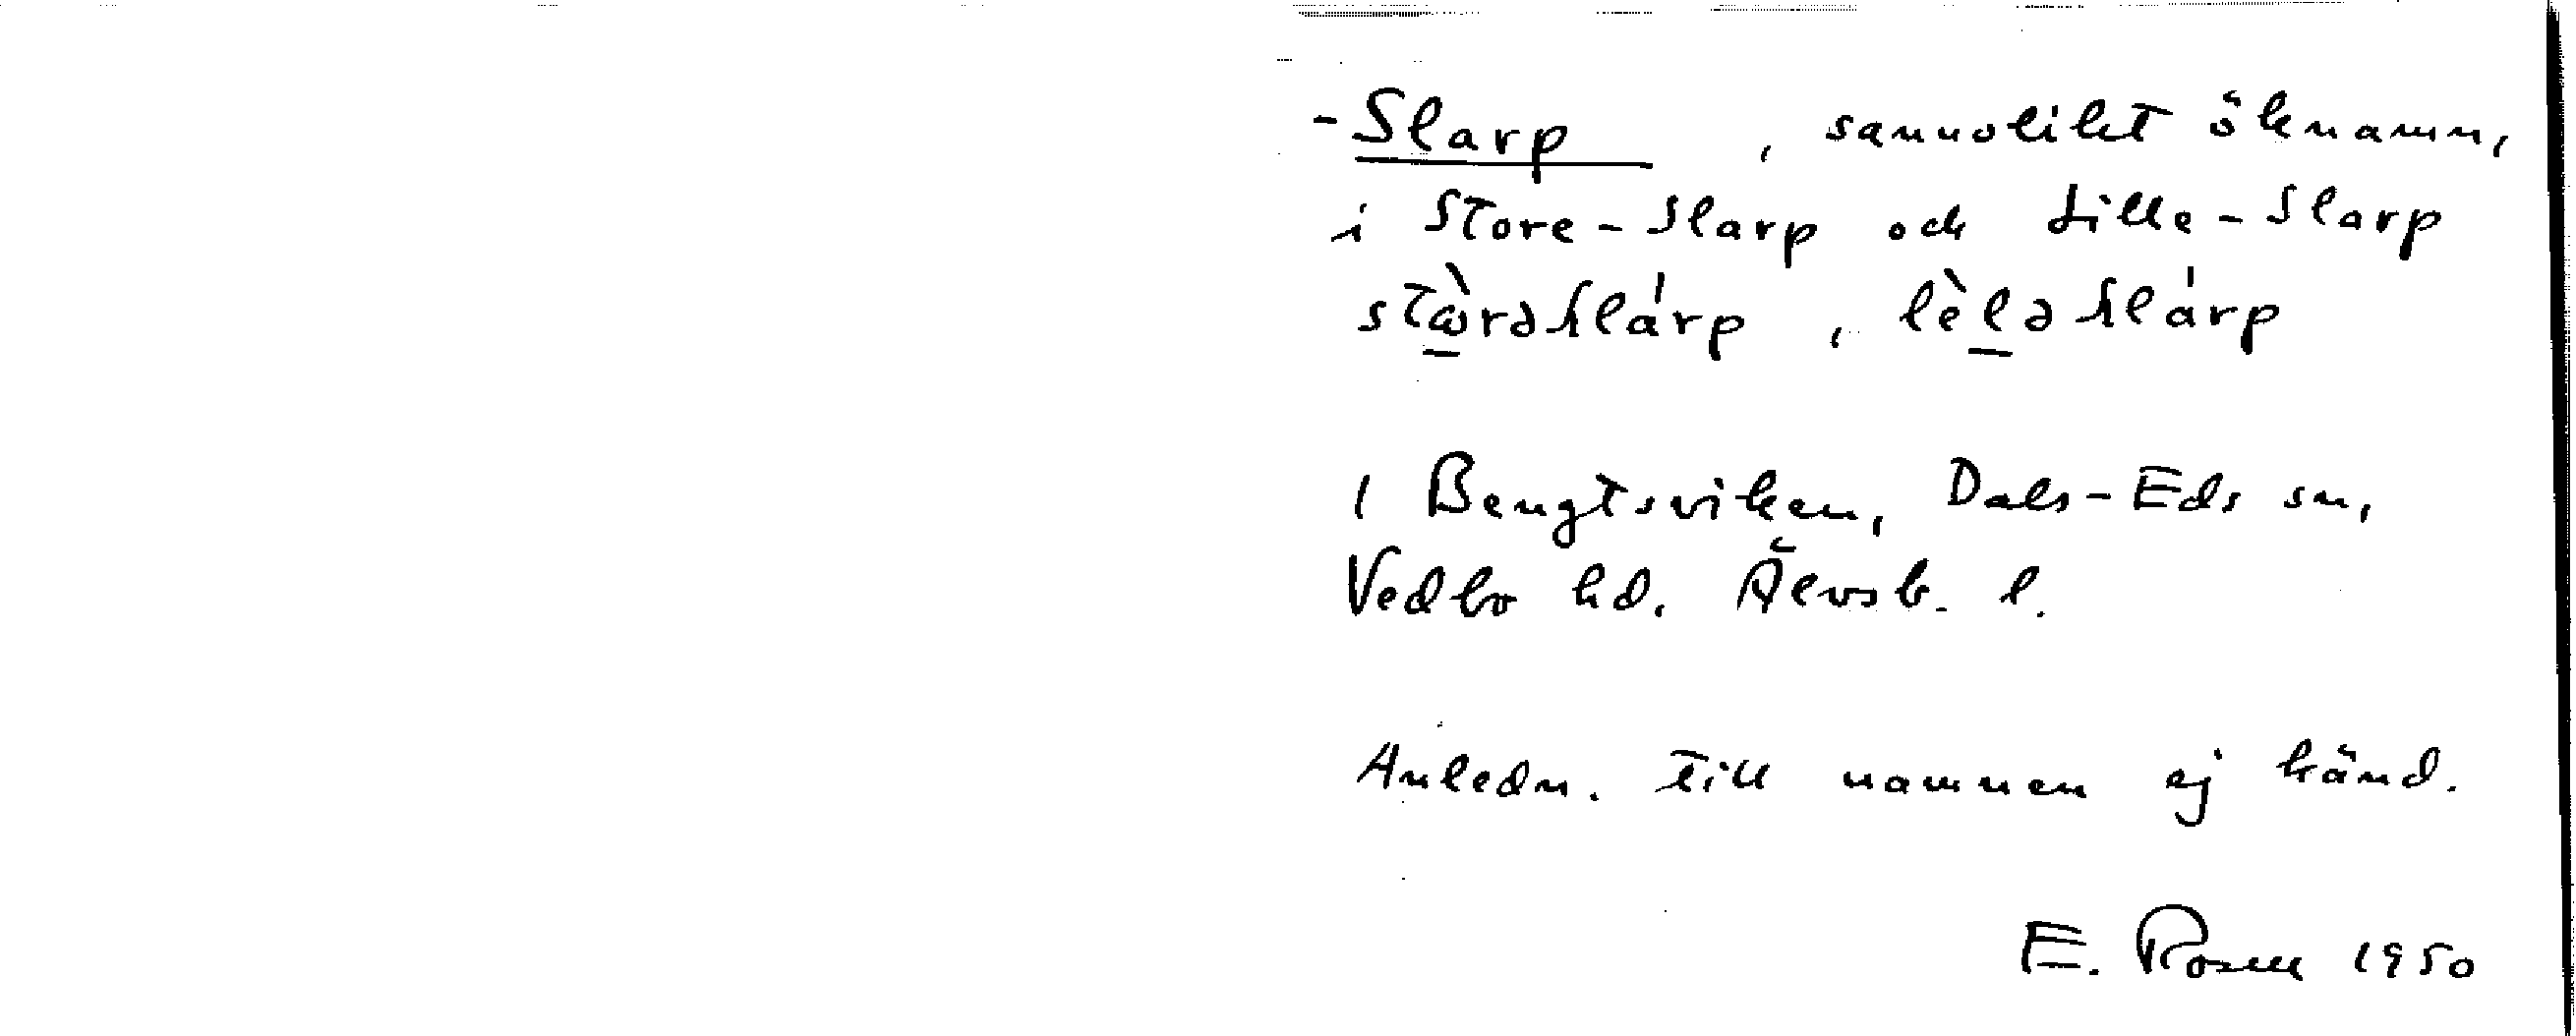 -Slarp, sannolikt öknamn,
i Store-Slarp och Lille-Slarp
stὼ̲rəslárp, lèl̲əslárp
I Bengtsviken, Dals-Eds sn,
Vedbo hd. Älvsb. l.
Anledn. till namnen ej känd.
E. Rosell 1950